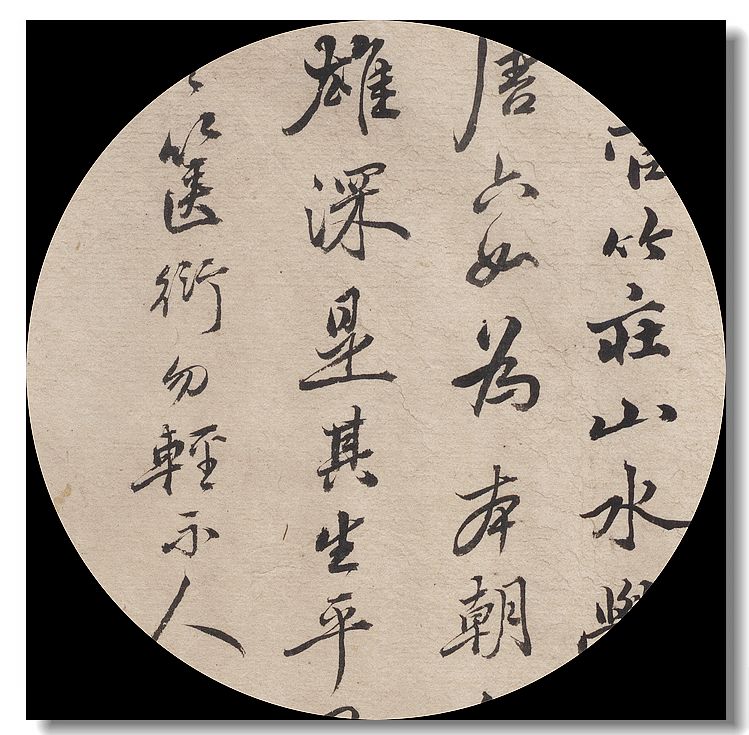 竹莊山水學
唐六如為本朝
雄深是其生平
篋衍勿輕示人